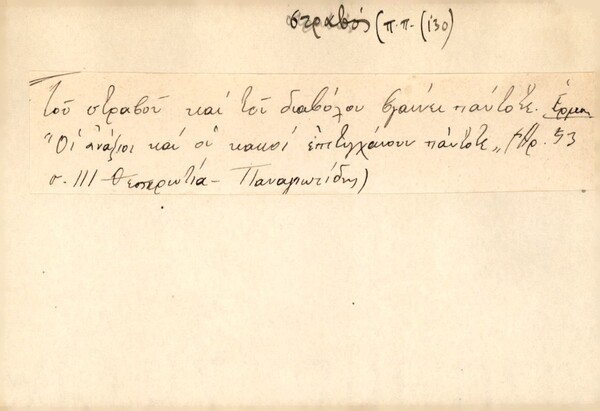 στραβός (π.π. (130)
Τοῦ στραβοῦ καὶ τοῦ διαβόλου βγαίνει πάντοτε. Ἑρμ.
"Οἱ ἀνάξιοι καὶ οἱ κακοί ἐπιτυγχάνουν πάντοτε„ (Ἀρ. 53
σ. 111 - Θεσπρωτία - Παναγιωτίδης)